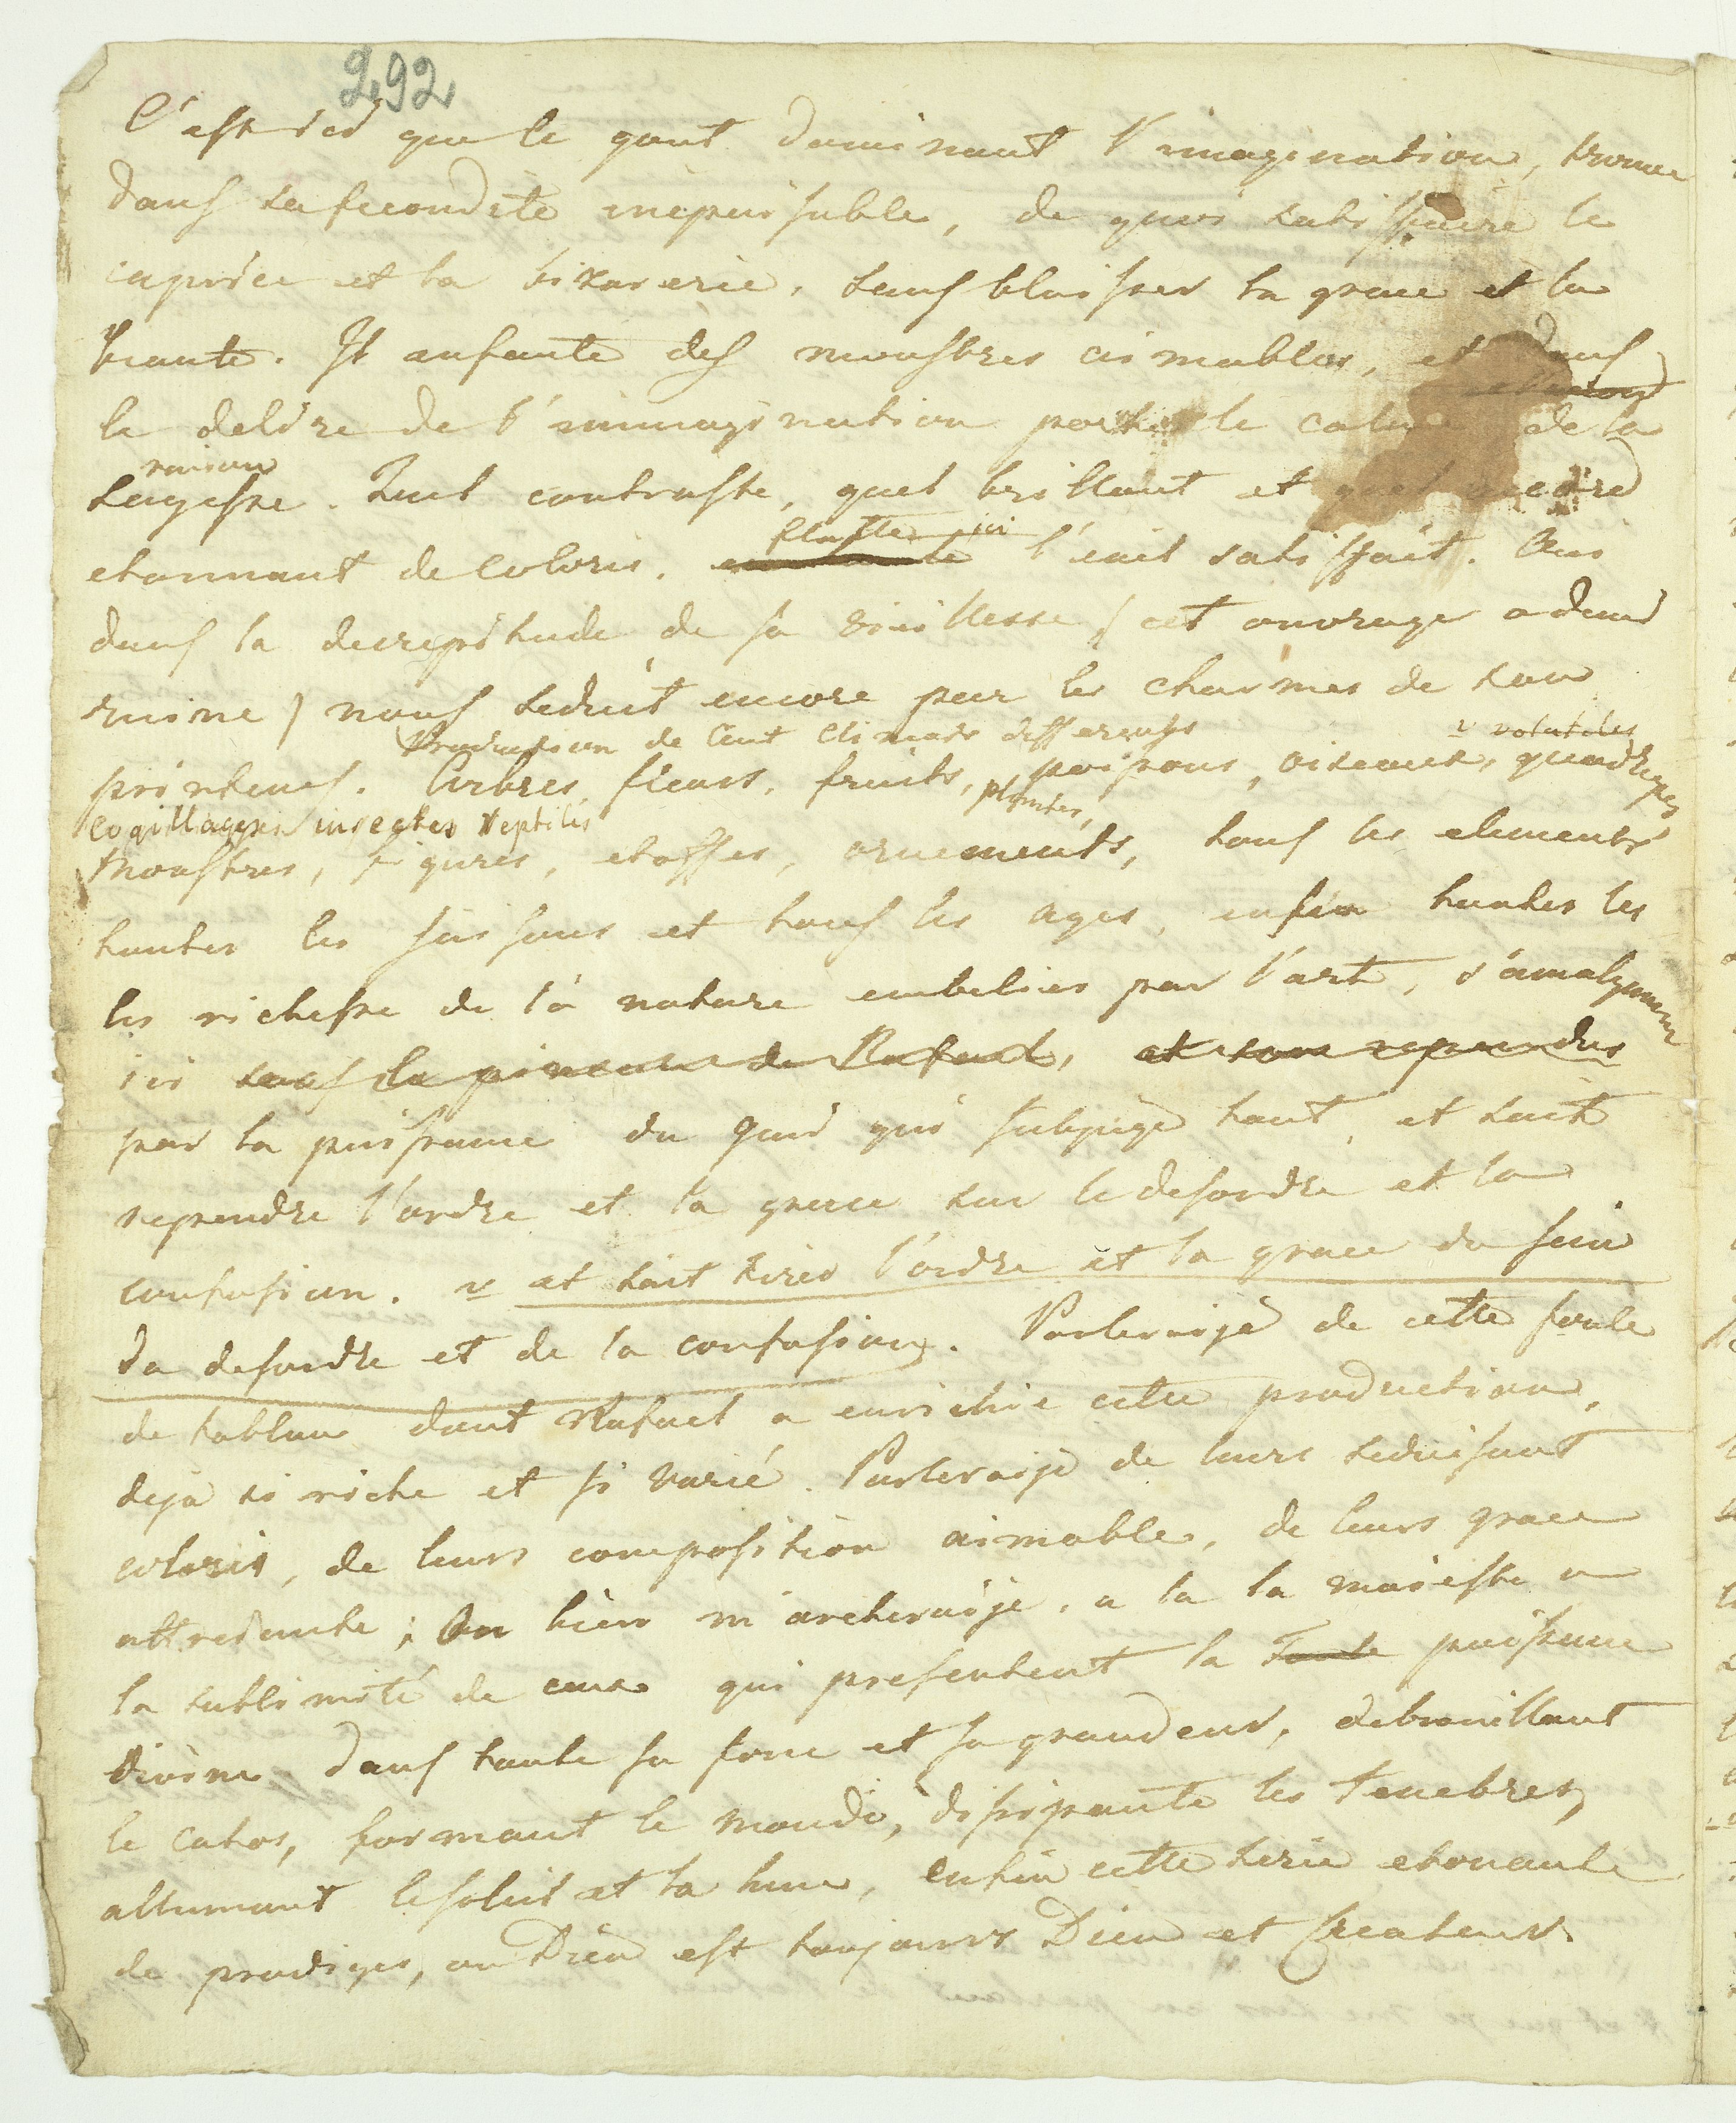 292
C'est ici que le gout dominant l'imagination, trouve
dans sa fecondité inepuisable, de quoi satisfaire le
caprice et la bizarerie, sans blaisser la grace et la
beauté. Il anfante des monstres aimables, et dans
le delire de l'immagination porte le calme de la
raison
sagesse. Quel contraste, quel brillant et quel
etonnant de coloris.
flatte ici
l'oeil satisfait. Ains
dans la decrepitude de sa vieillesse ( cet ouvrage a demi
ruine ) nous seduit encore par les charmes de son
Production de cent climats differents
v volatiles
printems. Arbres fleurs, fruits, plantes, poissons, oiseaux, quadrupes
Coqillages insectes reptiles
Monstres, figures, etoffes, ornements, tous les elements
toutes les saisons et tous les ages, enfin toutes les
les richesse de la nature embelies par l'art, s'amalgamme
ici sous le pinceau de Rafael, et sont repandus
par la puissance du genie qui subjuge tout, et sait
reprendre l'ordre et la grace sur le desordre et la
confusion. v et sait tirer l'ordre et la grace du sein
du desordre et de la confusion. Parleraije de cette foule
de tableau dont Rafael a enrichie cette production,
deja si riche et si varié. Parleraije de leurs seduisant
coloris, de leurs composition aimable, de leurs grace
attraiante; Ou bien m'areteraije, a la la majesté
la sublimité de ceux qui presentent la Toute puissance
divine dans toute sa force et sa grandeur, debrouillant
le cahos, formant le monde, dissipante les tenebres,
allumant le soleil et la lune, enfin cette serie etonante
de prodiges, ou Dieu est toujours Dieu et Createur